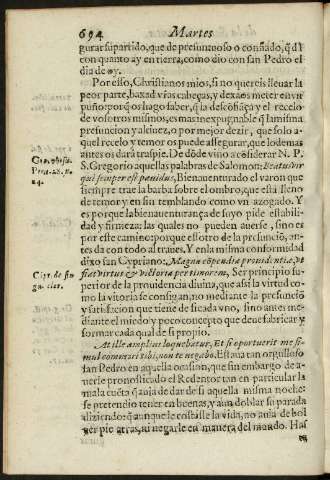 694 Martes
gurar su partido, que de presumoso o confiado, q̃ dẽ
con quanto ay en tierra, como dio con san Pedro el
dia de oy.
Por esso, Christianos mios, si no quereis lleuar la
peor parte, baxad vr̃as cabeças, y dexaos meter en vn
puño: porq̃ os hago saber, q̃ la descõfiaça y el recelo
de vosotros mismos, es mas inexpugnable q̃ la misma
presuncion y altiuez, o por mejor dezir, que solo a-
quel recelo y temor os puede assegurar, que lo demas
antes os dara traspie. De dõde vino a cõsiderar N. P.
S. Gregorio aquellas palabras de Salomon: Beatus vir
qui semper est pauidus, Bienauenturado el varon que
siempre trae la barba sobre el ombro, que està lleno
de temor, y en sin temblando como vn azogado. Y
es porque la bienauenturança de suyo pide estabili-
dad y firmeza: las quales no pueden auerse, sino es
por este camino: porque es otro de la presunciõ, an-
tes da con todo al traues. Y en la misma conformidad
dixo san Cypriano: Magna cõpendiè prouidentiæ, vt
fiat virtus & victoria per timorem, Ser principio su-
perior de la prouidencia diuina, que assi la virtud co-
mo la vitoria se consigan, no mediante la presunciõ
y satisfacion que tiene de si cada vno, sino antes me-
diante el miedo y poco concepto que deue fabricar y
formar cada qual de si propio.
At ille amplius loquebatur, Et si oportuerit me si-
mul commori tibi, non te negabo. Estaua tan orgulloso
san Pedro en aquella ocasion, que sin embargo de a-
uerle pronosticado el Redentor tan en particular la
mala cuẽta q̃ auia de dar de si aquella misma noche:
se pretendio tener en buenas, y aun doblar su parada
diziendo: q̃ aunque le costasse la vida, no auia de bol
uer pie atras, ni negarle en manera del mundo. Has
Greg.
Prou. 28. n.
Cipr. de sin
gu. cler.